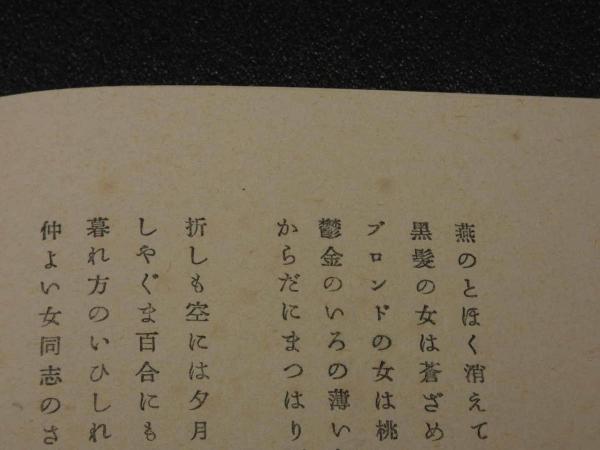 燕のとほく消えて
黒髪の女は蒼ざめ
ブロンドの女は桃
鬱金のいろの薄い
からだにまつはり
折しも空には夕月
しやぐま百合にも
暮れ方のいひしれ
仲よい女同志のさ